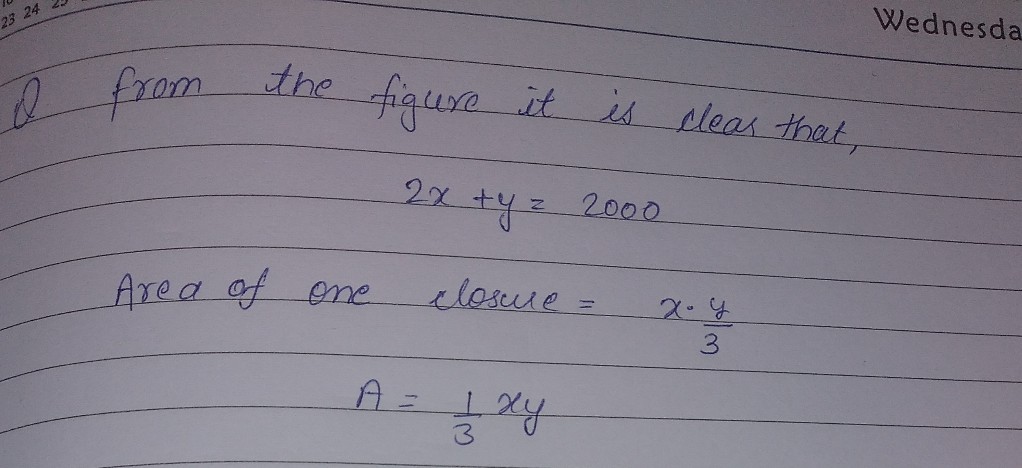 23 24
Wednesda
Q from the figure it is clear that,
2x + y = 2000
Area of one closure = x. y/3
A = 1/3 xy